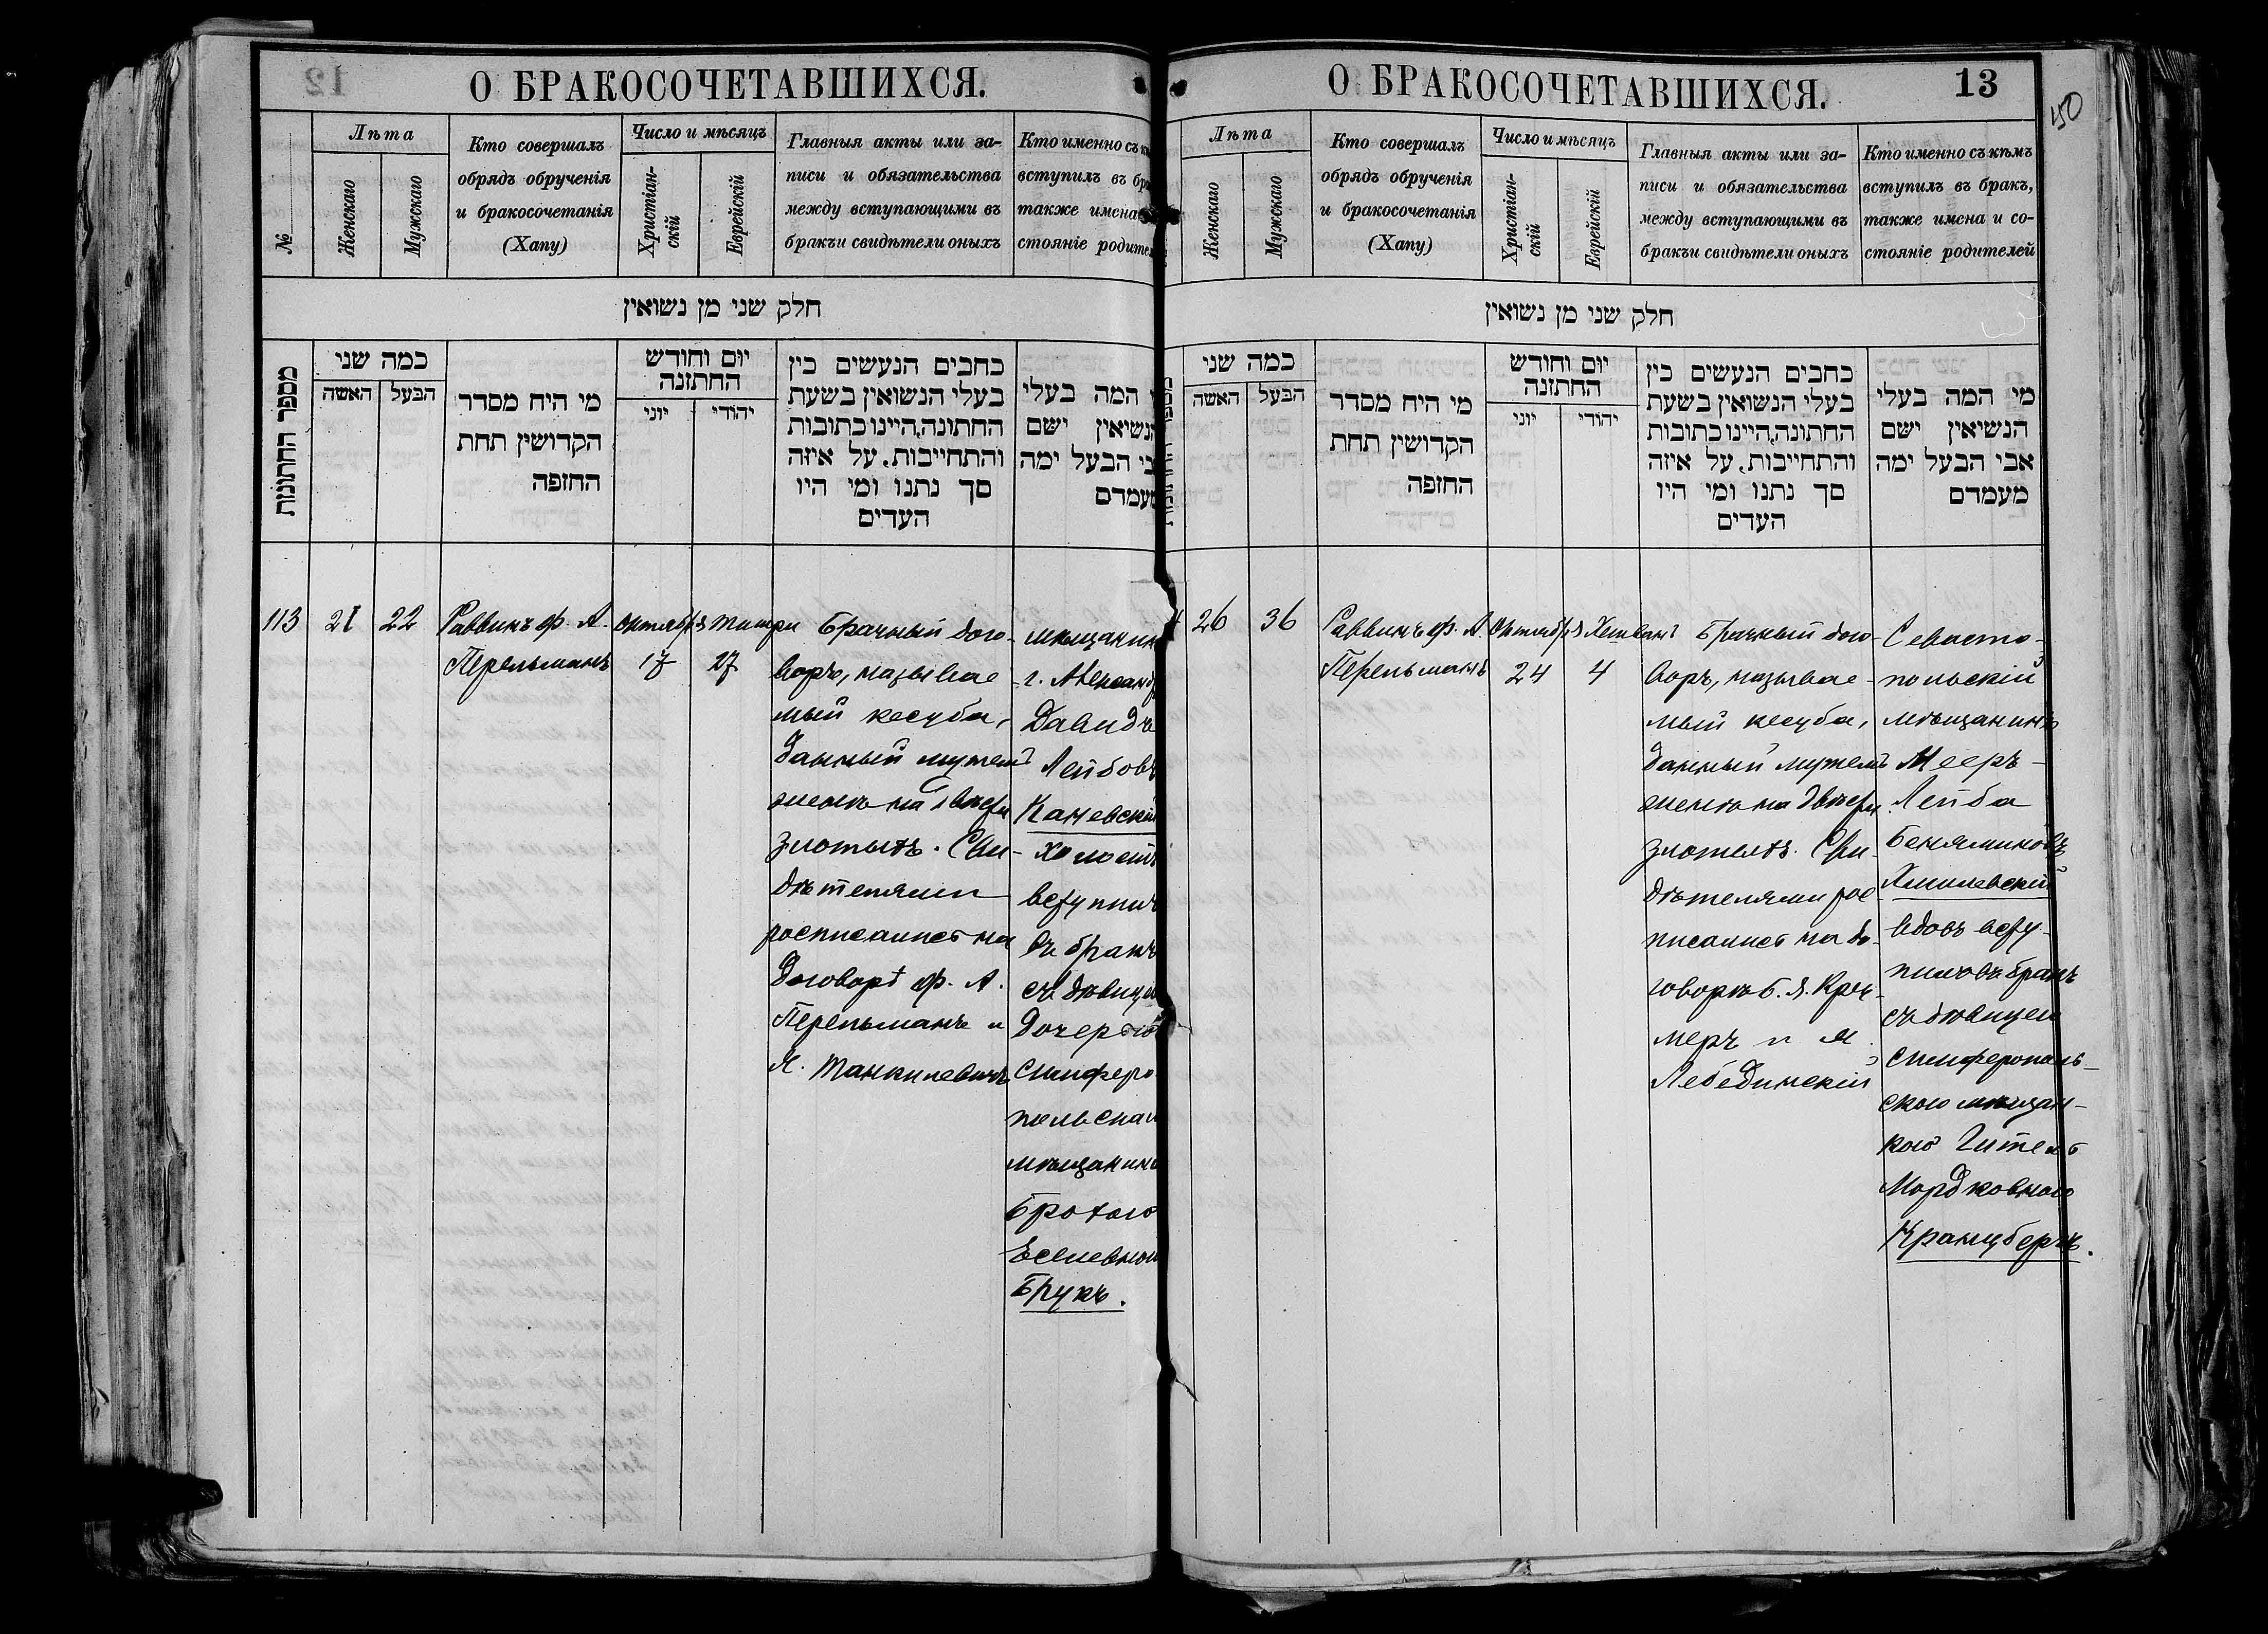 12
О БРАКОСОЧЕТАВШИХСЯ.
№
Лѣта
Женскаго
Мужскаго
Кто совершалъ
обрядъ обрученія
и бракосочетанія
(Хапу)
Число и мѣсяцъ
Христіан-
скій
Еврейскій
Главныя акты или за-
писи и обязательства
между вступающими въ
бракъ и свидѣтели оныхъ
Кто именно съ
вступилъ въ
также имена
стояніе
חלק שני מן נשואין
מספר החתונות
כמה שני
האשה
הבעל
מי היח מסדר
הקדושין תחת
החזפה
יום וחודש
החתזנה
יוני
יהודי
כחבים הנעשים כין
בעלי הנשואין בשעת
החתונה,היינו כתובות
והתחייבות. על איזה
סך נתנו ומי היו
העדים
המה בעלי
ישם
הבעל ימה
113
21
22
Раввинъ Ф. А.
Перельманъ
Октябрь
17
Тишри
27
Брачный дого-
воръ, называе-
мый кесуба,
данный мужемъ
женѣ на двѣсти
злотыхъ. Сви-
дѣтелями
росписались на
договорѣ Ф. А.
Перельманъ и
Я. Танкилевичъ
мѣщанин
г.
Давидъ
Лейбовъ
Каневскій
холостъ
вступилъ
въ бракъ
съ дѣвицей
дочерью
симферо-
польскаго
мѣщанина
Брук.
О БРАКОСОЧЕТАВШИХСЯ.
13
50
Лѣта
Женскаго
Мужскаго
Кто совершалъ
обрядъ обрученія
и бракосочетанія
(Хапу)
Число и мѣсяцъ
Христіан-
скій
Еврейскій
Главныя акты или за-
писи и обязательства
между вступающими въ
бракъ и свидѣтели оныхъ
Кто именно съ кѣмъ
вступилъ въ бракъ,
также имена и со-
стояніе родителей
חלק שני מן נשואין
כמה שני
האשה
הבעל
מי היח מסדר
הקדושין תחת
החזפה
יום וחודש
החתזנה
יוני
יהודי
כחבים הנעשים כין
בעלי הנשואין בשעת
החתונה,היינו כתובות
והתחייבות. על איזה
סך נתנו ומי היו
העדים
מי המה בעלי
הנשיאין ישם
אבי הבעל ימה
מעמדם
26
36
Раввинъ Ф. А.
Перельманъ
Октябрь
24
Хешванъ
4
Брачный дого-
воръ, называе-
мый кесуба,
данный мужемъ
женѣ на двѣсти
злотыхъ. Сви-
дѣтелями рос-
писались на до-
говорѣ Б. Я.
меръ и
Лебединскій
Севасто-
польскій
мѣщанинъ
Мееръ-
Лейба
Беняминовъ
Хмилевскій
вдовъ всту-
пилъ въ бракъ
съ дѣвицей
симферополь-
скою мѣщан-
кой Гитель
Мордковною
Кранцбергъ.